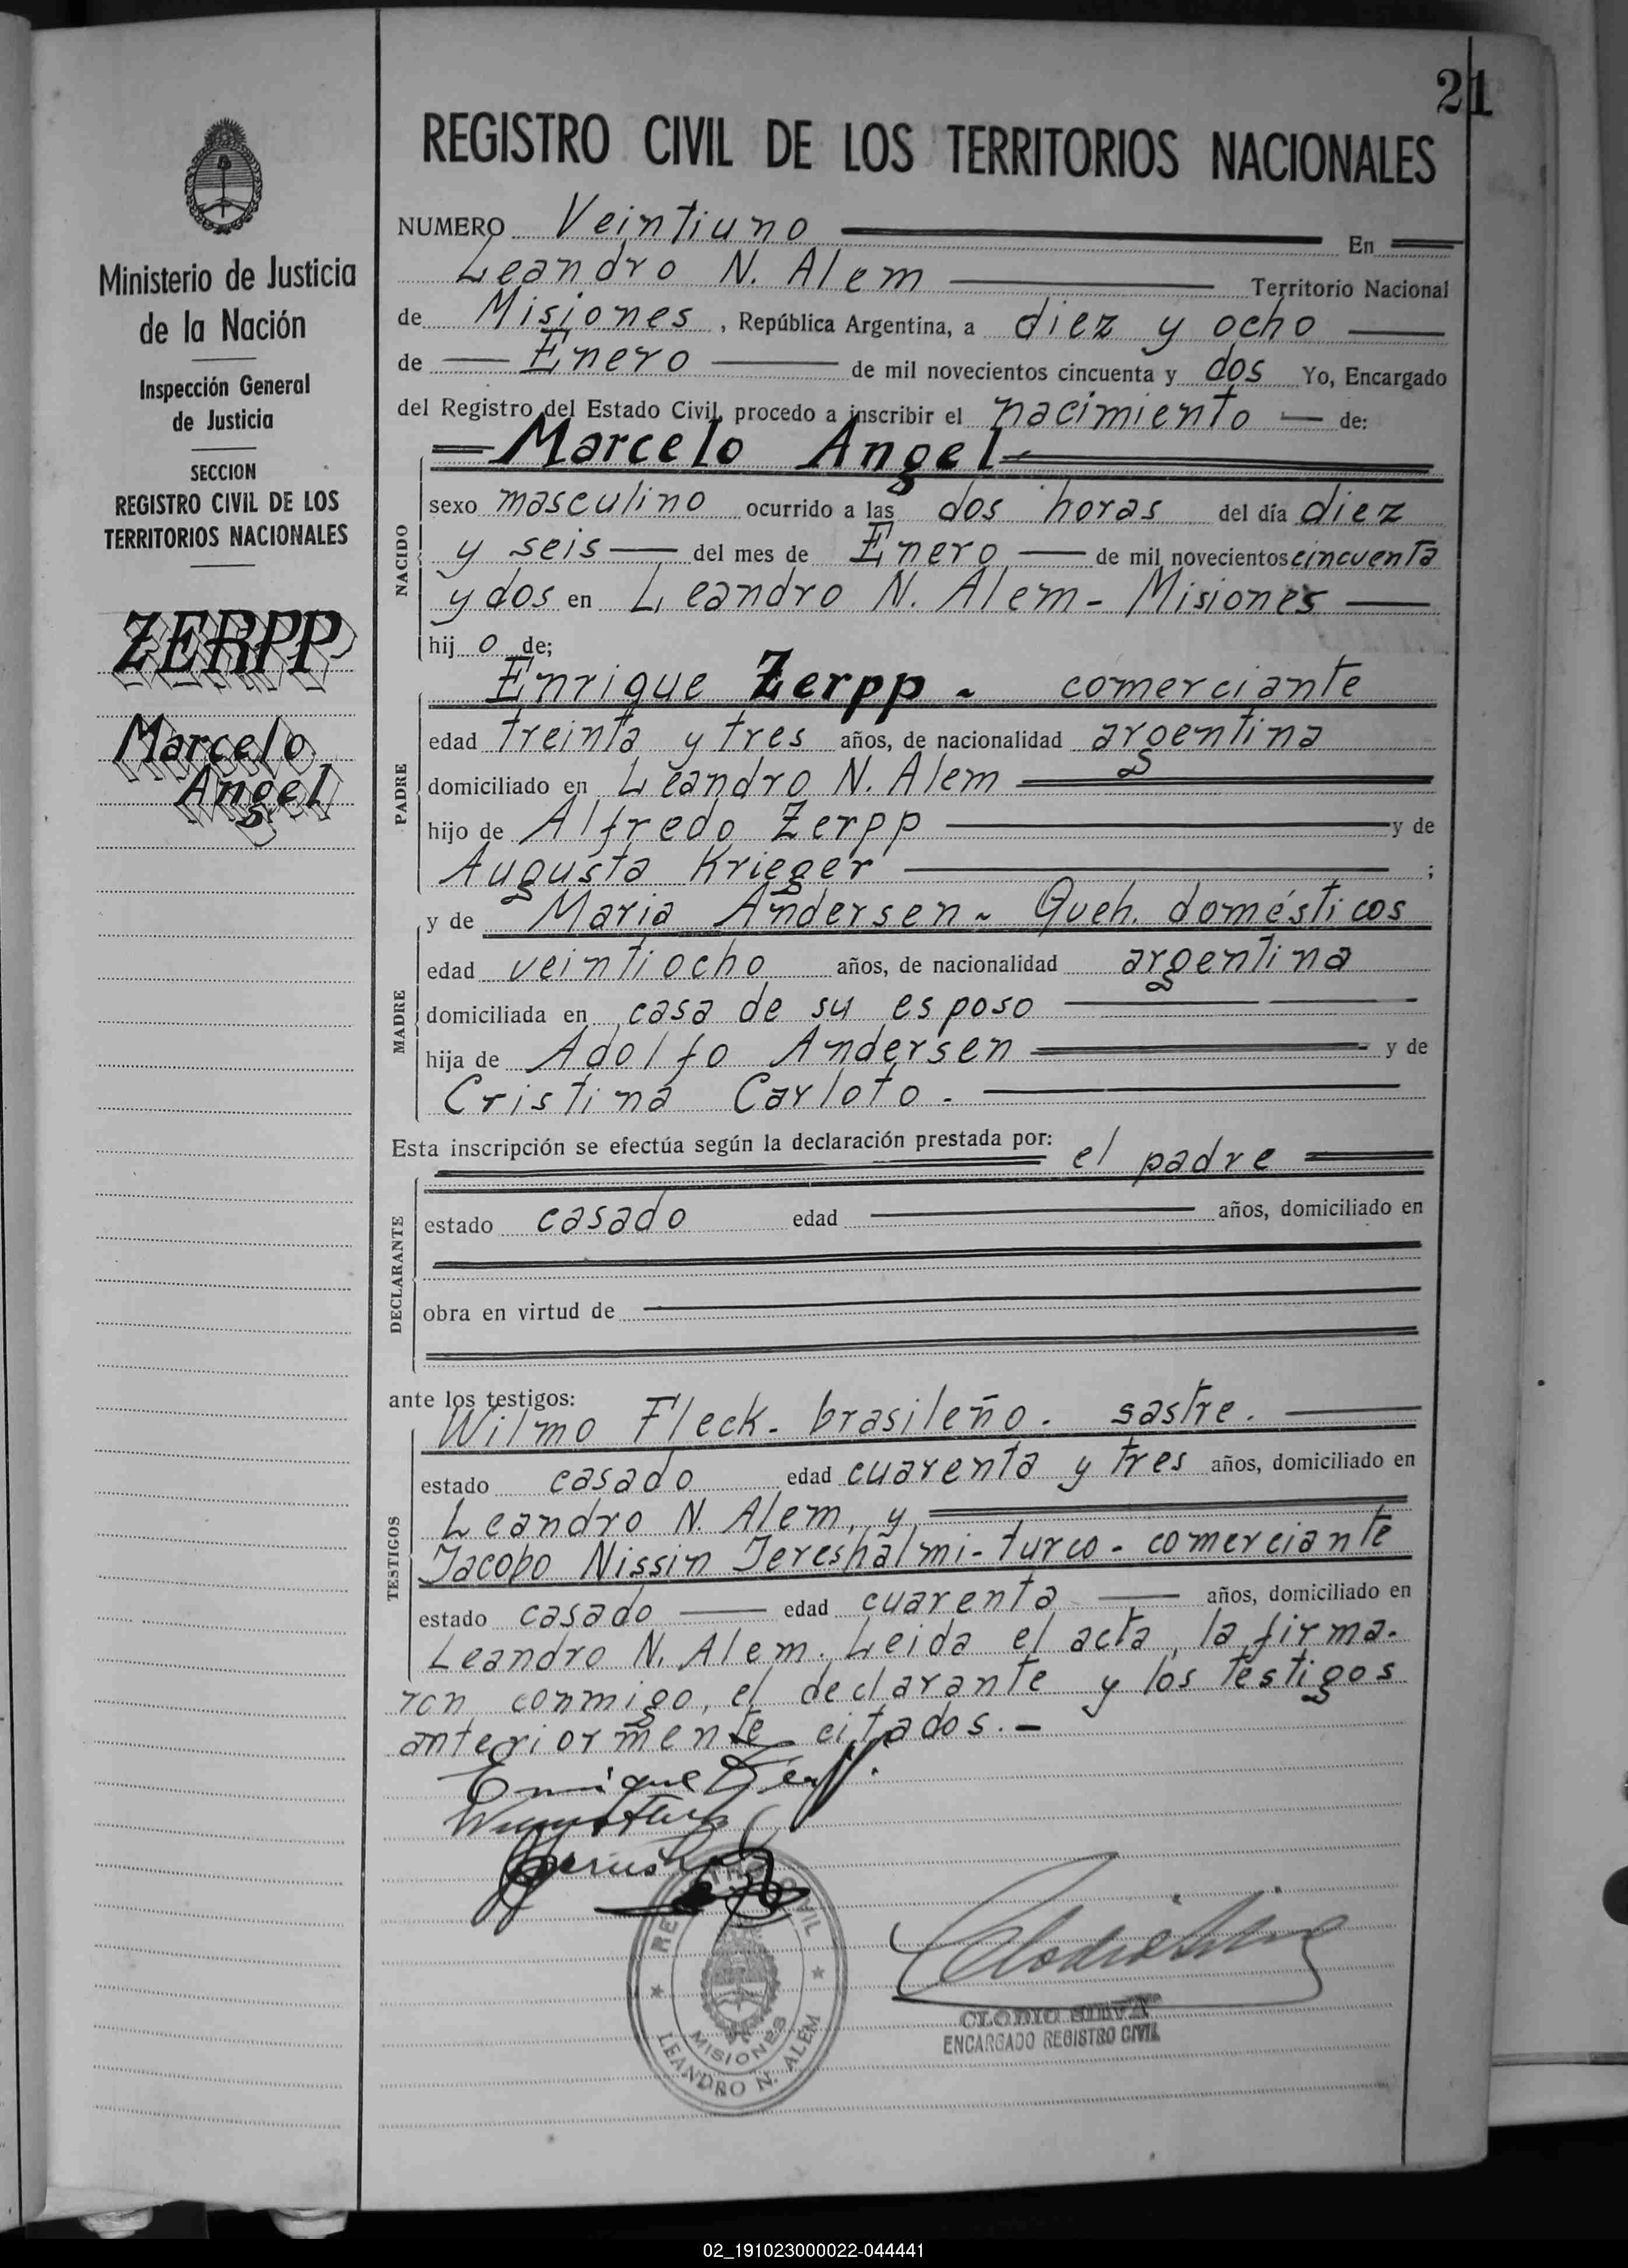 21
REGISTRO CIVIL DE LOS TERRITORIOS NACIONALES
Ministerio de Justicia
de la Nación
Inspección General
de Justicia
SECCION
REGISTRO CIVIL DE LOS
TERRITORIOS NACIONALES
ZERPP
Marcelo
Angel
NUMERO Veintiuno En
Leandro N. Alem Territorio Nacional
de Misiones, República Argentina, a diez y ocho
de Enero de mil novecientos cincuenta y dos Yo, Encargado
del Registro del Estado Civil, procedo a inscribir el nacimiento de:
Marcelo Angel
NACIDO
sexo masculino ocurrido a las dos horas del día diez
y seis del mes de Enero de mil novecientos cincuenta
y dos en Leandro N. Alem - Misiones
hij o de;
PADRE
Enrique Zerpp - comerciante
edad treinta y tres años, de nacionalidad argentina
domiciliado en Leandro N. Alem
hijo de Alfredo Zerpp y de
Augusta Krieger ;
y de Maria Andersen - Queh. domésticos
MADRE
edad veintiocho años, de nacionalidad argentina
domiciliada en casa de su esposo
hija de Adolfo Andersen y de
Cristina Carloto.
Esta inscripción se efectúa según la declaración prestada por: el padre
DECLARANTE
estado casado edad años, domiciliado en
obra en virtud de
ante los testigos:
TESTIGOS
Wilmo Fleck - brasileño. sastre.
estado casado edad cuarenta y tres años, domiciliado en
Leandro N. Alem, y
Jacobo Nissin Jereshalmi - turco - comerciante
estado casado edad cuarenta años, domiciliado en
Leandro N. Alem. Leida el acta, la firma-
ron conmigo, el declarante y los testigos
anteriormente citados.-
Enrique Zerpp.
REGISTRO CIVIL
MISIONES
LEANDRO N. ALEM
CLODIO SILVA
ENCARGADO REGISTRO CIVIL
02_191023000022-044441